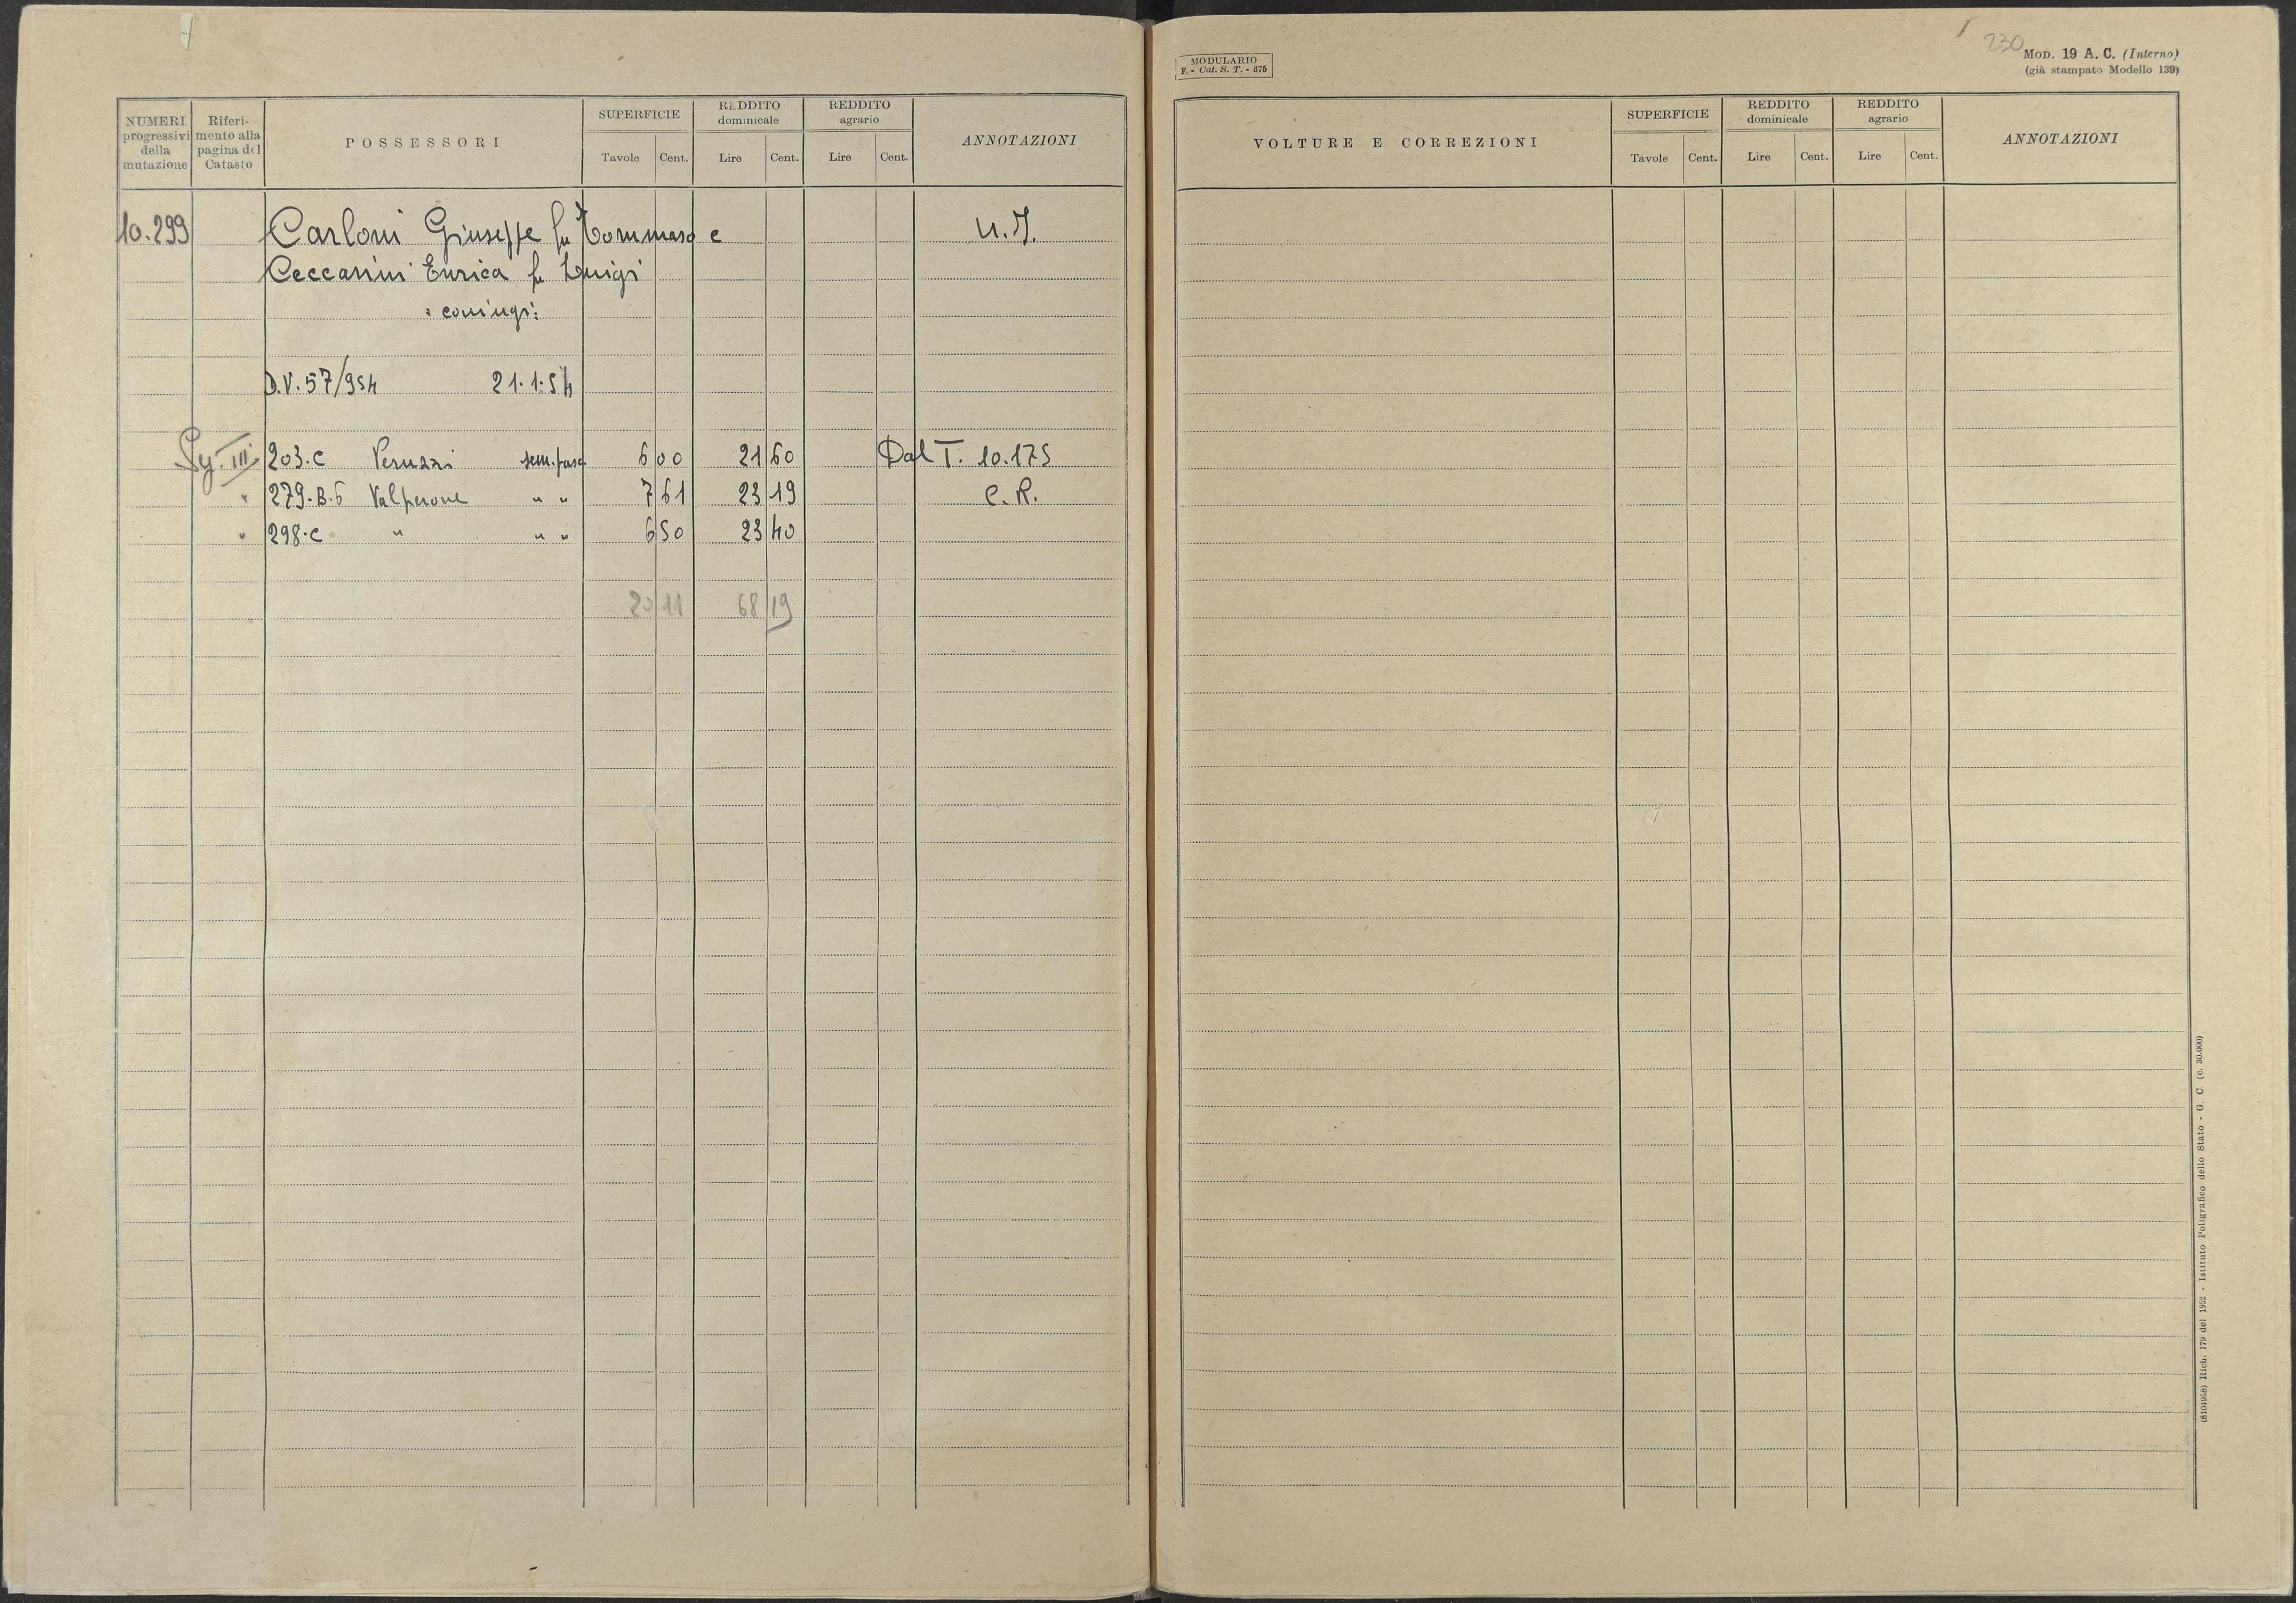 NUMERI progressivi della mutazione
Riferimento alla pagina del Catasto
POSSESSORI
SUPERFICIE
Tavole Cent.
REDDITO dominicale
Lire Cent.
REDDITO agrario
Lire Cent.
ANNOTAZIONI
10.299 Carloni Giuseppe fu Tommaso e
Ceccarini Enrica fu Luigi
: coniugi :
U.I.
D.V. 57/954 21.1.54
III 203.C Peruzzi sem. pasc. 6 00 21 60 Dal T. 10.175
" 279.B.6 Valperone " " 7 61 23 19 C.R.
" 298.C " " " 6 50 23 40
20 11 68 19
MODULARIO
F. - Cat. S. T. - 675
230
MOD. 19 A. C. (Interno)
(già stampato Modello 139)
VOLTURE E CORREZIONI
SUPERFICIE
Tavole Cent.
REDDITO dominicale
Lire Cent.
REDDITO agrario
Lire Cent.
ANNOTAZIONI
(8104958) Rich. 179 del 1952 - Istituto Poligrafico dello Stato - G. C. (c. 30.000)